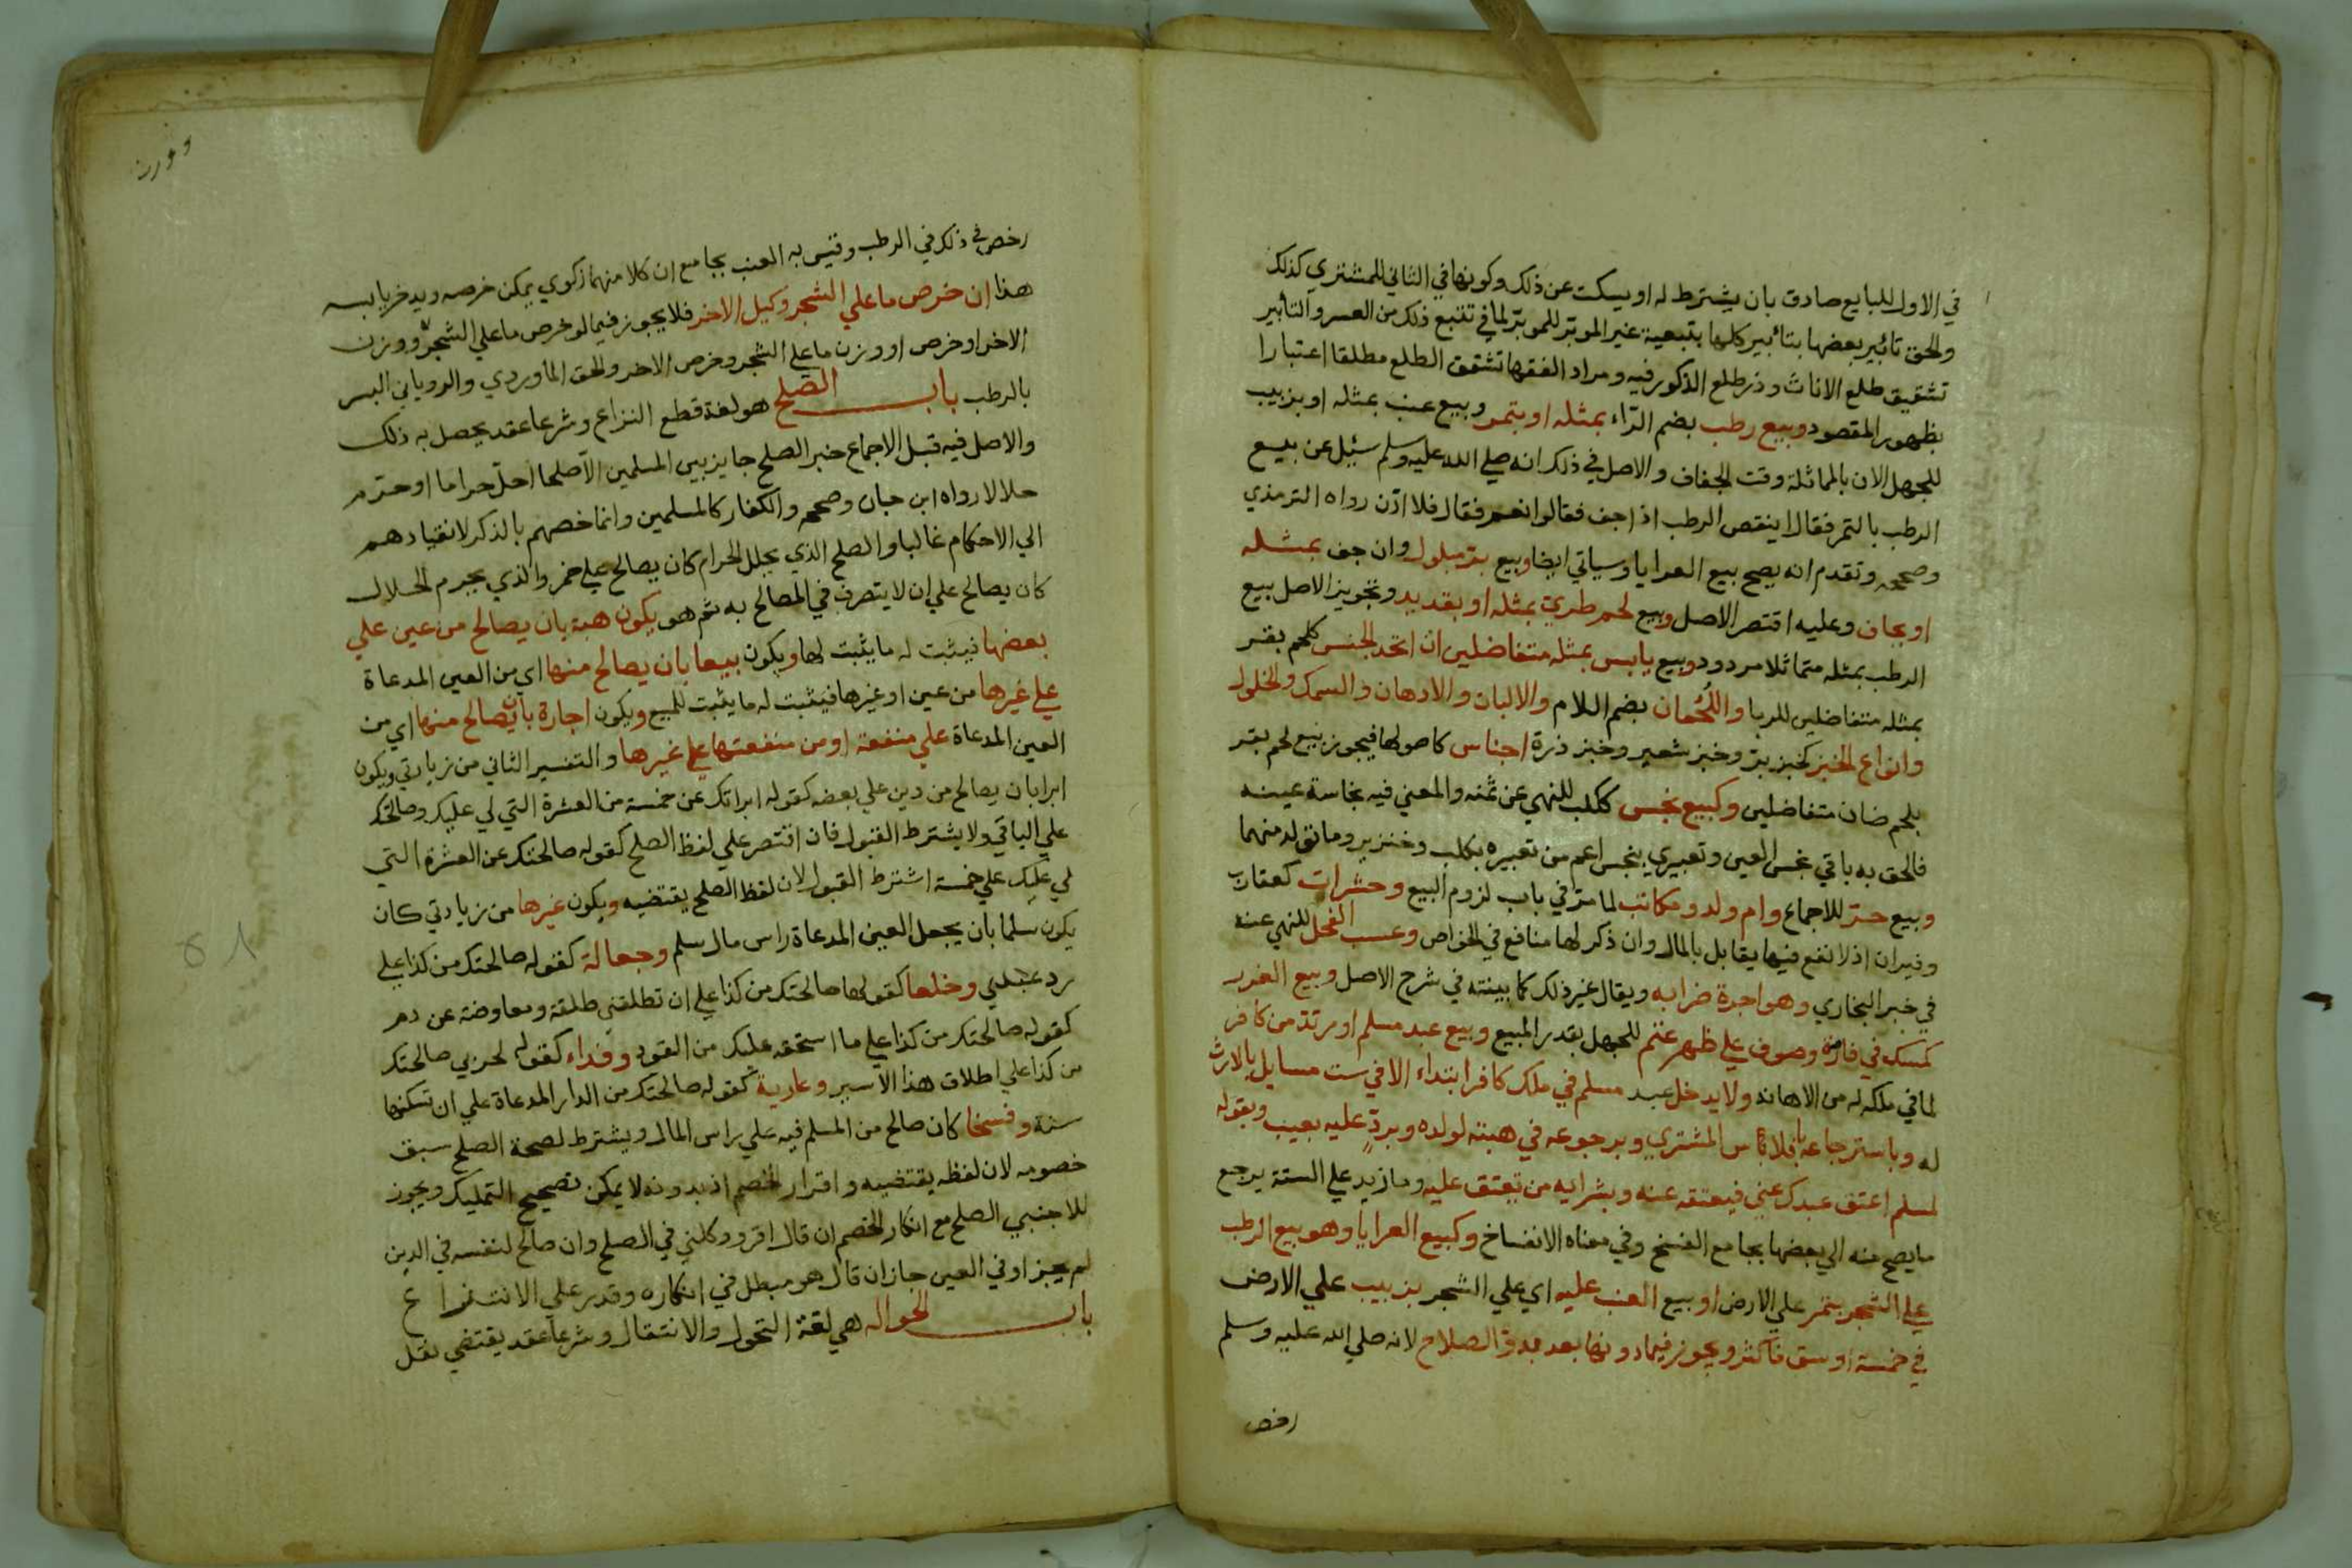 في الاول للبايع صادق بان يشترط له او يسكت عن ذلك وكونها في الثاني للمشتري كذلك
والحق تابير بعضها بتابير كلها بتبعية غير الموبر للموبر لما في تتبع ذلك من العسر والتابير
تشقيق طلع الاناث وذر طلع الذكور فيه ومراد الفقها تشقق الطلع مطلقا اعتبارا
بظهور المقصود وبيع رطب بضم الراء بمثله او بتمر وبيع عنب بمثله او بزبيب
للجهل الان بالمماثلة وقت الجفاف والاصل في ذلك انه صلي الله عليه وسلم سئل عن بيع
الرطب بالتمر فقال اينقص الرطب اذا جف فقالوا نعم فقال فلا اذن رواه الترمذي
وصححه وتقدم انه يصح بيع العرايا وسياتي ايضا وبيع بر مبلول وان جف بمثله
او بجاف وعليه اقتصر الاصل وبيع لحم طري بمثله او بقديد وتجويز الاصل بيع
الرطب بمثله متماثلا مردود وبيع يابس بمثله متفاضلين ان اتحد الجنس كلحم بقر
بمثله متفاضلين للربا واللُّحْمان بضم اللام والالبان والادهان والسمك والخلول
وانواع الخبز كخبز بر وخبز شعير وخبز ذرة اجناس كاصولها فيجوز بيع لحم بقر
بلحم ضان متفاضلين وكبيع نجس ككلب للنهي عن ثمنه والمعني فيه نجاسة عينه
فالحق به باقي نجس العين وتعبيري بنجس اعم من تعبيره بكلب وخنزير وما تولد منهما
وبيع حر للاجماع وام ولد ومكاتب لما مر في باب لزوم البيع وحشرات كعقارب
وفيران اذ لا نفع فيها يقابل بالمال وان ذكر لها منافع في الخواص وعسب الفحل للنهي عنه
في خبر البخاري وهو اجرة ضرابه ويقال غير ذلك كما بينته في شرح الاصل وبيع الغرر
كمسك في فاره وصوف علي ظهر غنم للجهل بقدر المبيع وبيع عبد مسلم او مرتد من كافر
لما في ملكه له من الاهانه ولا يدخل عبد مسلم في ملك كافر ابتداء الا في ست مسايل بالارث
له وباسترجاعه بافلاس المشتري وبرجوعه في هبته لولده وبرد عليه بعيب وبقوله
لمسلم اعتق عبدك عني فيعتقه عنه وبشرايه من يعتق عليه وما زيد علي الستة يرجع
ما يصح منه الي بعضها بجامع الفسخ وفي معناه الانفساخ وكبيع العرايا وهو بيع الرطب
علي الشجر بتمر علي الارض او بيع العنب عليه اي علي الشجر بزبيب علي الارض
في خمسة اوسق فاكثر ويجوز فيما دونها بعد بدو الصلاح لانه صلي الله عليه وسلم
رخص
رخص في ذلك في الرطب وقيس به العنب بجامع ان كلا منهما زكوي يمكن خرصه ويدخر يابسه
هذا ان خرص ما علي الشجر وكيل الاخر فلا يجوز فيما لو خرص ما علي الشجر ووزن
الاخر او خرص او وزن ما علي الشجر وخرص الاخر والحق الماوردي والروياني البسر
بالرطب باب الصلح هو لغة قطع النزاع وشرعا عقد يحصل به ذلك
والاصل فيه قبل الاجماع خبر الصلح جايز بين المسلمين الا صلحا احل حراما او حرم
حلالا رواه ابن حبان وصححه والكفار كالمسلمين وانما خصهم بالذكر لانقيادهم
الي الاحكام غالبا والصلح الذي يحلل الحرام كان يصالح علي خمر والذي يحرم الحلال
كان يصالح علي ان لا يتصرف في المصالح به ثم هو يكون هبة بان يصالح من عين علي
بعضها فيثبت له ما يثبت لها ويكون بيعا بان يصالح منها اي من العين المدعاة
علي غيرها من عين او غيرها فيثبت له ما يثبت للبيع ويكون اجارة بان يصالح منها اي من
العين المدعاة علي منفعة او من منفعتها علي غيرها والتفسير الثاني من زيادتي ويكون
ابرا بان يصالح من دين علي بعضه كقوله ابراتك عن خمسة من العشرة التي لي عليك وصالحتك
علي الباقي ولا يشترط القبول فان اقتصر علي لفظ الصلح كقوله صالحتك عن العشرة التي
لي عليك علي خمسة اشترط القبول لان لفظ الصلح يقتضيه ويكون غيرها من زيادتي كان
يكون سلما بان يجعل العين المدعاة راس مال سلم وجعالة كقوله صالحتك من كذا علي
رد عبدي وخلعا كقولها صالحتك من كذا علي ان تطلقني طلقة ومعاوضة عن دم
كقوله صالحتك من كذا علي ما استحقه عليك من القود وفداء كقوله لحربي صالحتك
من كذا علي اطلاق هذا الاسير وعارية كقوله صالحتك من الدار المدعاة علي ان تسكنها
سنة وفسخا كان صالح من المسلم فيه علي راس المال ويشترط لصحة الصلح سبق
خصومه لان لفظه يقتضيه واقرار الخصم اذ بدونه لا يمكن تصحيح التمليك ويجوز
للاجنبي الصلح مع انكار الخصم ان قال اقر ووكلني في الصلح وان صالح لنفسه في الدين
لم يجز او في العين جاز ان قال هو مبطل في انكاره وقدر علي الانتزاع
باب الحواله هي لغة التحول والانتقال وشرعا عقد يقتضي نقل